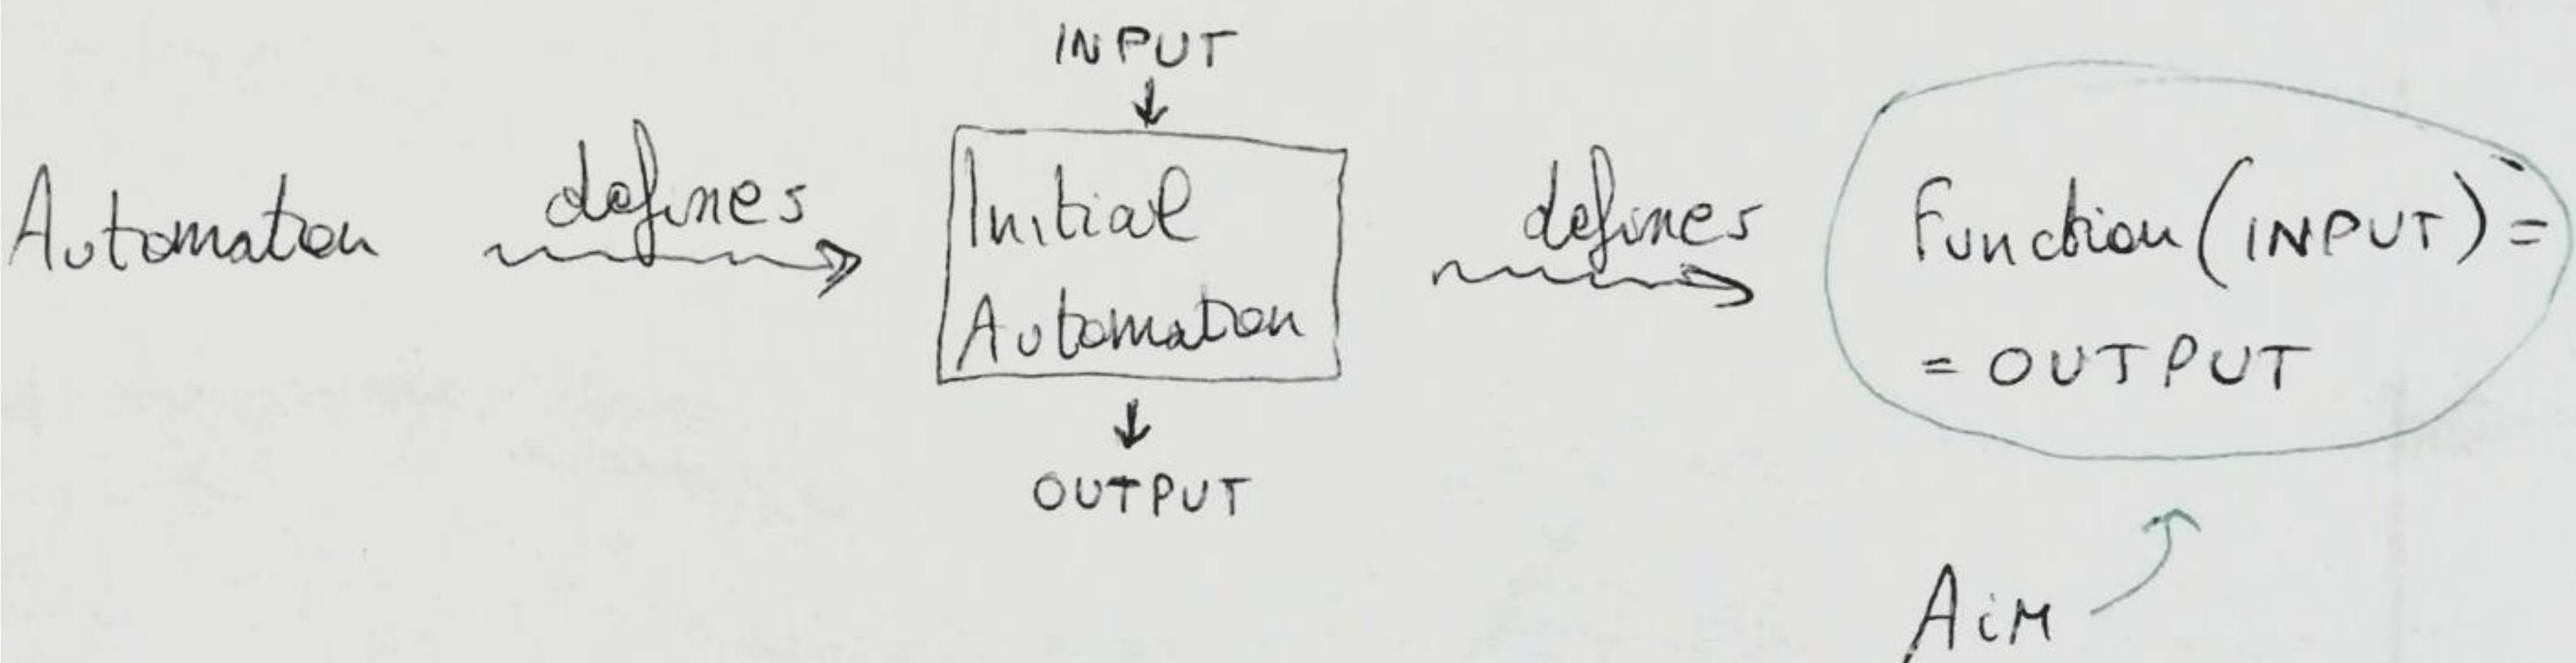 INPUT
Automation defines Initial Automation defines Function (INPUT) =
= OUTPUT
OUTPUT
Aim